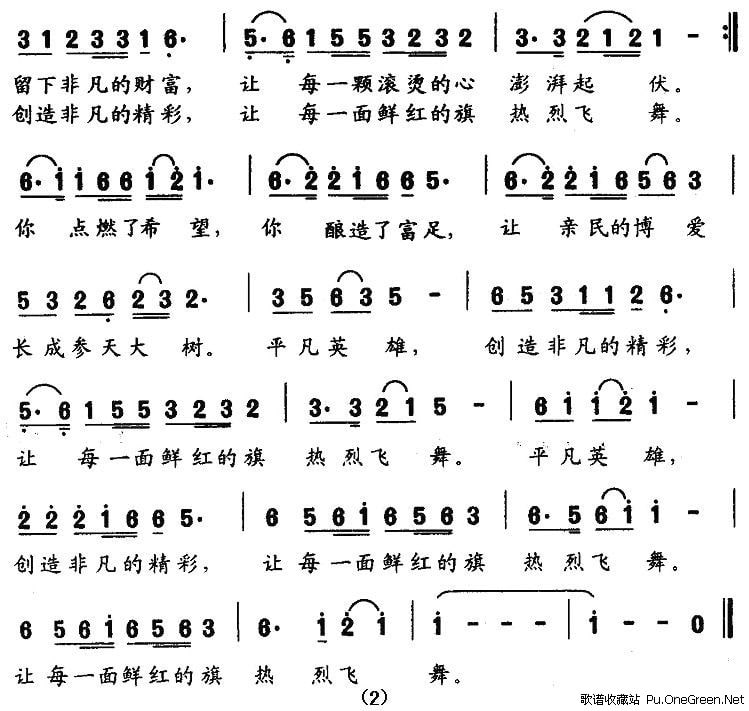 3 1 2 3 3 1 6· | 5· 6 1 5 5 3 2 3 2 | 3· 3 2 1 2 1 – :|
留下非凡的财富， 让 每一颗滚烫的心 澎湃起 伏。
创造非凡的精彩， 让 每一面鲜红的旗 热烈飞 舞。
6· i i 6 6 i 2 i· | 6· 2 2 i 6 6 5· | 6· 2 2 i 6 5 6 3
你 点燃了希望， 你 酿造了富足， 让 亲民的博爱
5 3 2 6 2 3 2· | 3 5 6 3 5 – | 6 5 3 1 1 2 6·
长成参天大 树。 平凡英 雄， 创造非凡的精彩，
5· 6 1 5 5 3 2 3 2 | 3· 3 2 1 5 – | 6 i i 2 i –
让 每一面鲜红的旗 热 烈飞 舞。 平凡英 雄，
2 2 2 i 6 6 5· | 6 5 6 i 6 5 6 3 | 6· 5 6 i i –
创造非凡的精彩， 让 每一面鲜红的旗 热 烈飞 舞。
6 5 6 i 6 5 6 3 | 6· i 2 i | i – – – | i – – 0
让 每一面鲜红的旗 热 烈飞 舞。
(2)
歌谱收藏站 Pu.OneGreen.Net